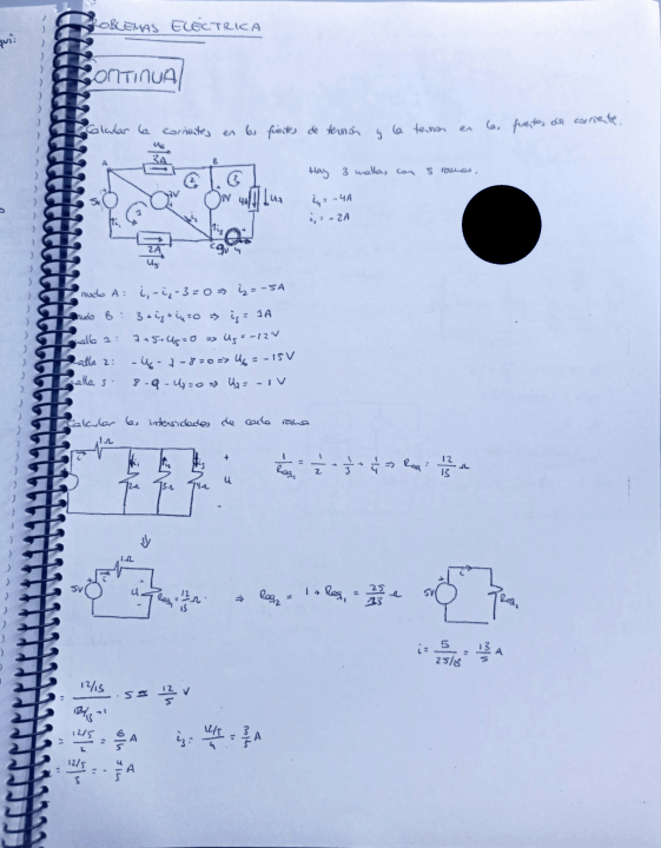 OBLEMAS ELÉCTRICA
ONTINUA
Calcular la corrientes en las fuentes de tensión y la tension en las fuentes de corriente.
Hay 3 mallas con 5 ramas.
i₄ = -4A
i₁ = -2A
u₆
3A
A
B
2
3
1
4A
u₇
i₁
i₂
i₃
C
9V
2A
u₅
nudo A: i₁ - i₂ - 3 = 0 ⇒ i₂ = -5A
nudo B: 3 + i₃ + i₄ = 0 ⇒ i₃ = 1A
malla 1: 7 + 5 + u₅ = 0 ⇒ u₅ = -12V
malla 2: - u₆ - 7 - 8 = 0 ⇒ u₆ = -15V
malla 3: 8 - 9 - u₇ = 0 ⇒ u₇ = -1V
Calcular las intensidades de cada rama
1Ω
i
i₃
2Ω
3Ω
4Ω
+
u
-
1/Req₁ = 1/2 + 1/3 + 1/4 ⇒ Req₁ = 12/13 Ω
⇓
5V
+
i
1Ω
u
Req₁ = 12/13 Ω
⇒ Req₂ = 1 + Req₁ = 25/13 Ω
5V
+
i
Req₂
i = 5/(25/13) = 13/5 A
= (12/13)/(12/13+1) · 5 = 12/5 V
= (12/5)/2 = 6/5 A
i₃ = (12/5)/4 = 3/5 A
= (12/5)/3 = - 4/5 A